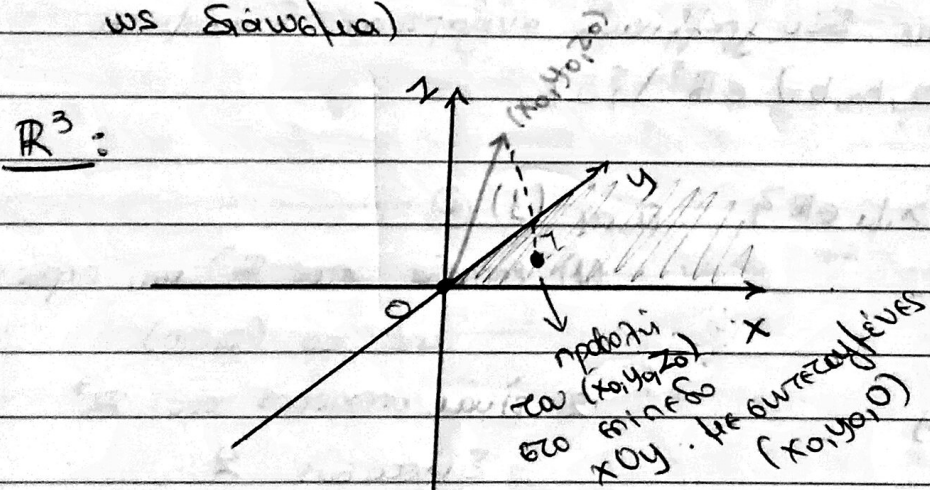 ως διάνυσμα)
ℝ³:
z
(x₀,y₀,z₀)
y
O
x
προβολή
του (x₀,y₀,z₀)
στο επίπεδο
xOy. με συντεταγμένες
(x₀,y₀,0)